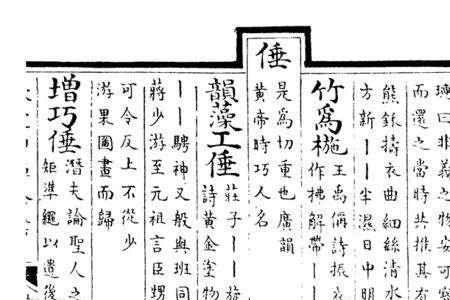 曰非義之物安可
而還之當時共推其有
熊鉌擣衣曲細絲清水
方新一一半濕日中明
竹為椸王禹偁詩振衣
作拂解帶一一
倕
是為切重也廣韻
黃帝時巧人名
韻藻工倕莊子一一旋
詩黃金塗物
一一騁神又般與班同
蔣少游至元祖言臣甥
可令反上不從少
游果圖畫而歸
增巧倕潛夫論聖人之
矩準繩以遺後